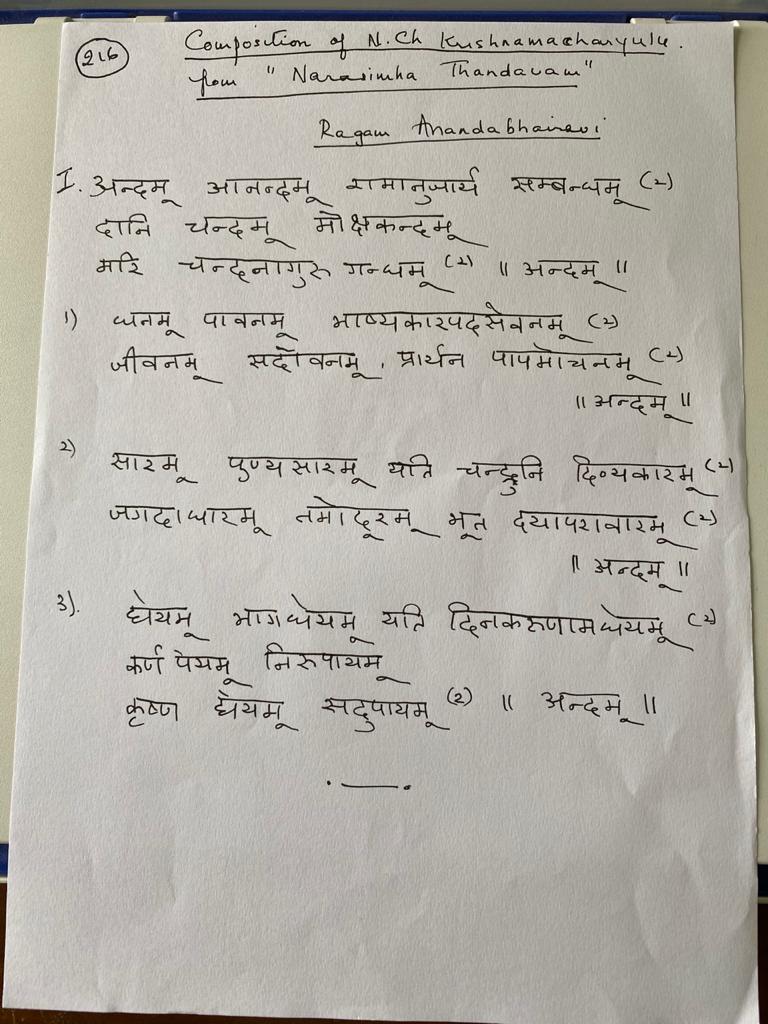 216
Composition of N.Ch Krishnamacharyulu.
from "Narasimha Thandavam"
Ragam Anandabhairavi
I. अन्दमू आनन्दमू रामानुजार्य सम्बन्धमू (2)
दानि चन्दमू मोक्षकन्दमू
मरि चन्दनागुरु गन्धमू (2) ॥ अन्दमू ॥
1) धनमू पावनमू भाष्यकारपदसेवनमू (2)
जीवनमू सदौवनमू, प्रार्थन पापमोचनमू (2)
॥ अन्दमू ॥
2) सारमू पुण्यसारमू यति चन्द्रुनि दिव्यकारमू (2)
जगदाधारमू तमोदूरमू भूत दयापरावारमू (2)
॥ अन्दमू ॥
3). धेयमू भागधेयमू यति दिनकरुणामधेयमू (2)
कर्ण पेयमू निरुपायमू
कृष्ण धेयमू सदुपायमू (2) ॥ अन्दमू ॥